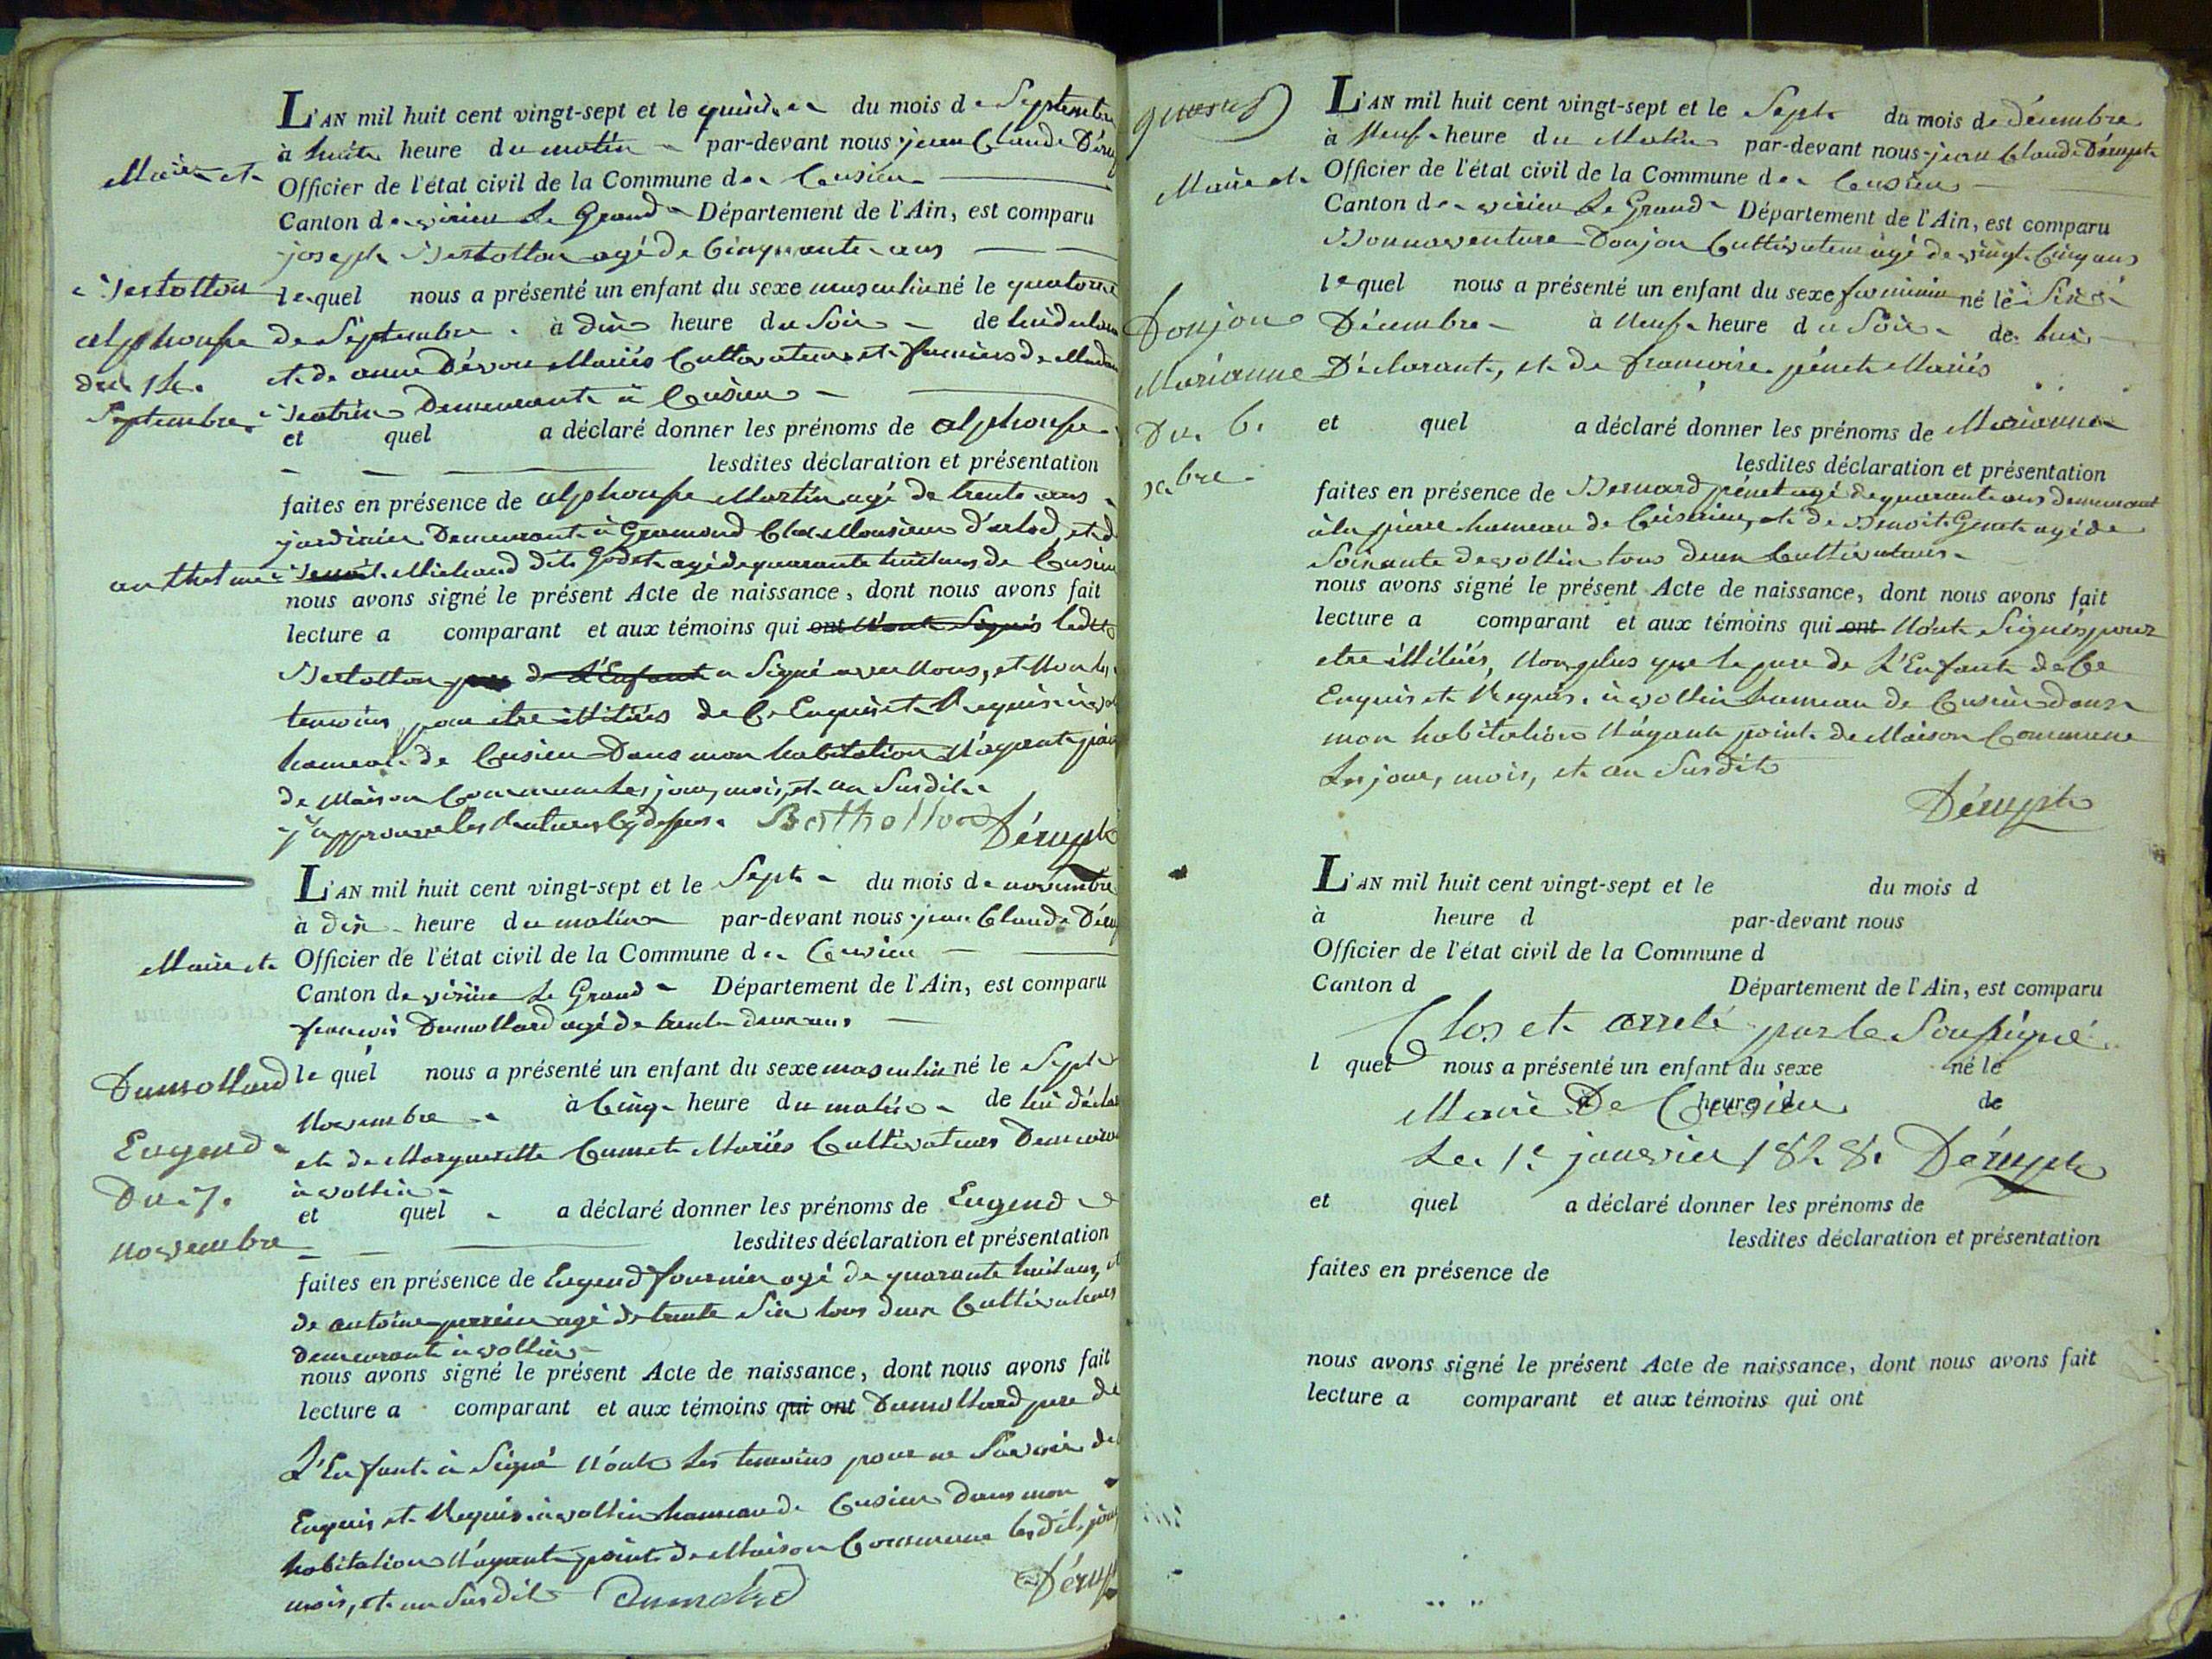 L'AN mil huit cent vingt-sept et le quinze du mois de Septembre
à huit heure du matin par-devant nous jean Claude Déru
Maire et
Officier de l'état civil de la Commune de Cusieu
Canton de virieu Le Grand Département de l'Ain, est comparu
joseph Bertollon agé de Cinquante ans
Bertollon
lequel nous a présenté un enfant du sexe masculin né le quatorze
alphonse
de Septembre à dix heure du Soir de lui
du 14.
et de anne Mariés Cultivateurs et fermiers de
Septembre
Demeurant à Cusieu
et quel a déclaré donner les prénoms de alphonse
lesdites déclaration et présentation
faites en présence de alphonse Martin agé de trente ans
jardinier Demeurant à Gramond Chez Monsieur d'arlod, et d
Benoit Michaud dit Godet agé de quarante huit ans de Cusieu
nous avons signé le présent Acte de naissance, dont nous avons fait
lecture a comparant et aux témoins qui ont n'ont Signés ledit
Bertollon de L'Enfant a Signé avec Nous, et Non les
temoins pour etre illitérés de Ce Enquis et Requis à vo
hameau de Cusieu Dans mon habitation N'ayant poin
de Maison Commune Les jour, mois, et an Susdit
j'approuve les Cy dessus Berthollon Dérupt
L'AN mil huit cent vingt-sept et le Sept du mois de novembre
à dix heure du matin par-devant nous jean Claude Déru
Maire et
Officier de l'état civil de la Commune de Cusieu
Canton de virieu Le Grand Département de l'Ain, est comparu
françois Dumollard agé de trente deux ans
Dumollard
le quel nous a présenté un enfant du sexe masculin né le Sept
Novembre à Cinq heure du matin de lui décla
Eugend
et de Margueritte Mariés Cultivateurs Demeura
Du 7.
à vollien
et quel a déclaré donner les prénoms de Eugend
novembre
lesdites déclaration et présentation
faites en présence de Eugend fournier agé de quarante huit ans, et
de antoine perrin agé de trente Six tous deux Cultivateurs
demeurant à vollien
nous avons signé le présent Acte de naissance, dont nous avons fait
lecture a comparant et aux témoins qui ont Dumollard pere de
L'Enfant à Signé N'ont Les temoins pour ne Savoir de
Enquis et Requis à vollien hameau de Cusieu Dans mon
habitation N'ayant point de Maison Commune lesdit jour
mois, et an Susdit Dumolard Dérupt
L'AN mil huit cent vingt-sept et le Sept du mois de décembre
à Neuf heure du Matin par-devant nous jean Claude Dérupt
Maire et
Officier de l'état civil de la Commune de Cusieu
Canton de virieu Le Grand Département de l'Ain, est comparu
Bonnaventure Donjon Cultivateur agé de vingt Cinq ans
lequel nous a présenté un enfant du sexe feminin né le Six
Donjon
Décembre à Neuf heure du Soir de lui
Marianne
Déclarant, et de françoise pénet Mariés
Du 6.
et quel a déclaré donner les prénoms de Marianne
xbre
lesdites déclaration et présentation
faites en présence de Bernard pénet agé de quarante ans demeurant
à la pierre hameau de et de Benoit Genet agé de
Soixante de vollien tous deux Cultivateurs
nous avons signé le présent Acte de naissance, dont nous avons fait
lecture a comparant et aux témoins qui ont N'ont Signés pour
etre illitérés, Non plus que le pere de L'Enfant de Ce
Enquis et Requis à vollien hameau de Cusieu dans
mon habitation N'ayant point de Maison Commune
Les jour, mois, et an Susdit
Dérupt
L'AN mil huit cent vingt-sept et le du mois d
à heure d par-devant nous
Officier de l'état civil de la Commune d
Canton d Département de l'Ain, est comparu
Clos et arreté par le Soussigné
l quel nous a présenté un enfant du sexe né le
Maire De Cusieu
à heure d de
Le 1er janvier 1828. Dérupt
et quel a déclaré donner les prénoms de
lesdites déclaration et présentation
faites en présence de
nous avons signé le présent Acte de naissance, dont nous avons fait
lecture a comparant et aux témoins qui ont